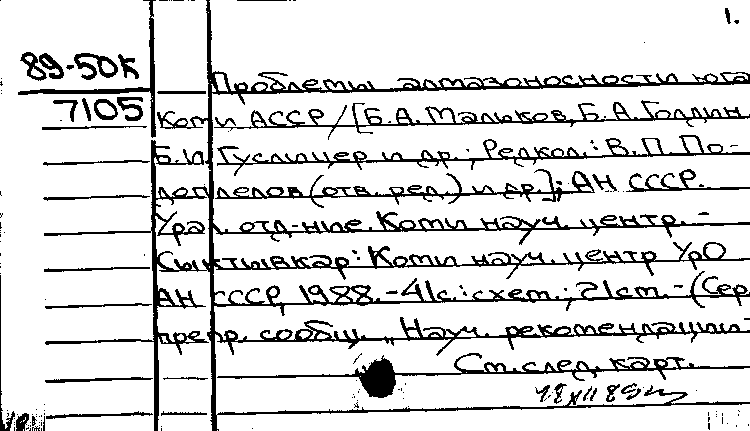 1.
89-50к
7105
Проблемы алмазоносности юга
Коми АССР / [Б.А. Мальков, Б.А. Голдин,
Б.И. Гуслицер и др.; Редкол.: В.П. По-
доплелов (отв. ред.) и др.]; АН СССР.
Урал. отд-ние. Коми науч. центр. -
Сыктывкар: Коми науч. центр УрО
АН СССР, 1988. - 41с.: схем.; 21см. - (Сер.
препр. сообщ. „Науч. рекомендации-
См. след. карт.